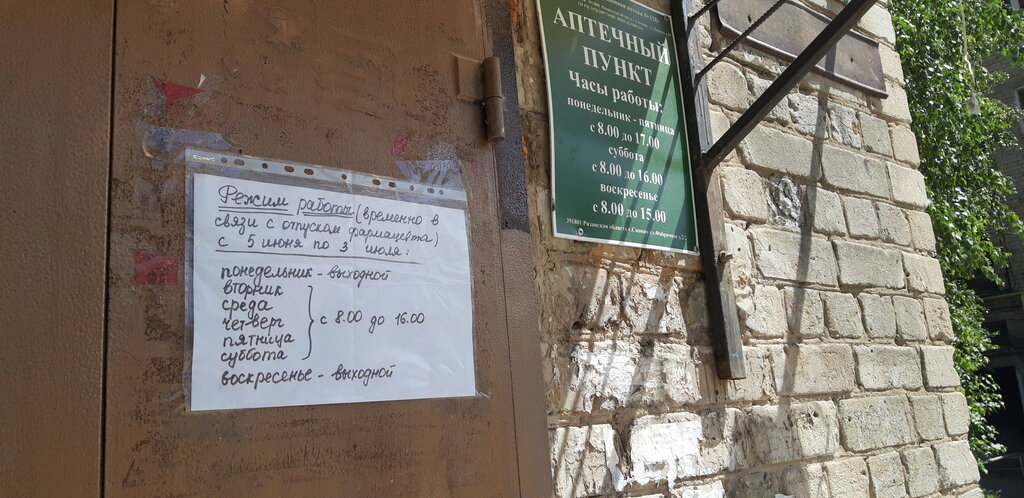 Режим работы (временно в
связи с отпуском фармацевта)
с 5 июня по 3 июля:
понедельник - выходной
вторник
среда
четверг
пятница
суббота
с 8.00 до 16.00
воскресенье - выходной
АПТЕЧНЫЙ
ПУНКТ
Часы работы:
понедельник - пятница
с 8.00 до 17.00
суббота
с 8.00 до 16.00
воскресенье
с 8.00 до 15.00
391801 Рязанская область г.Скопин ул.Фабричная